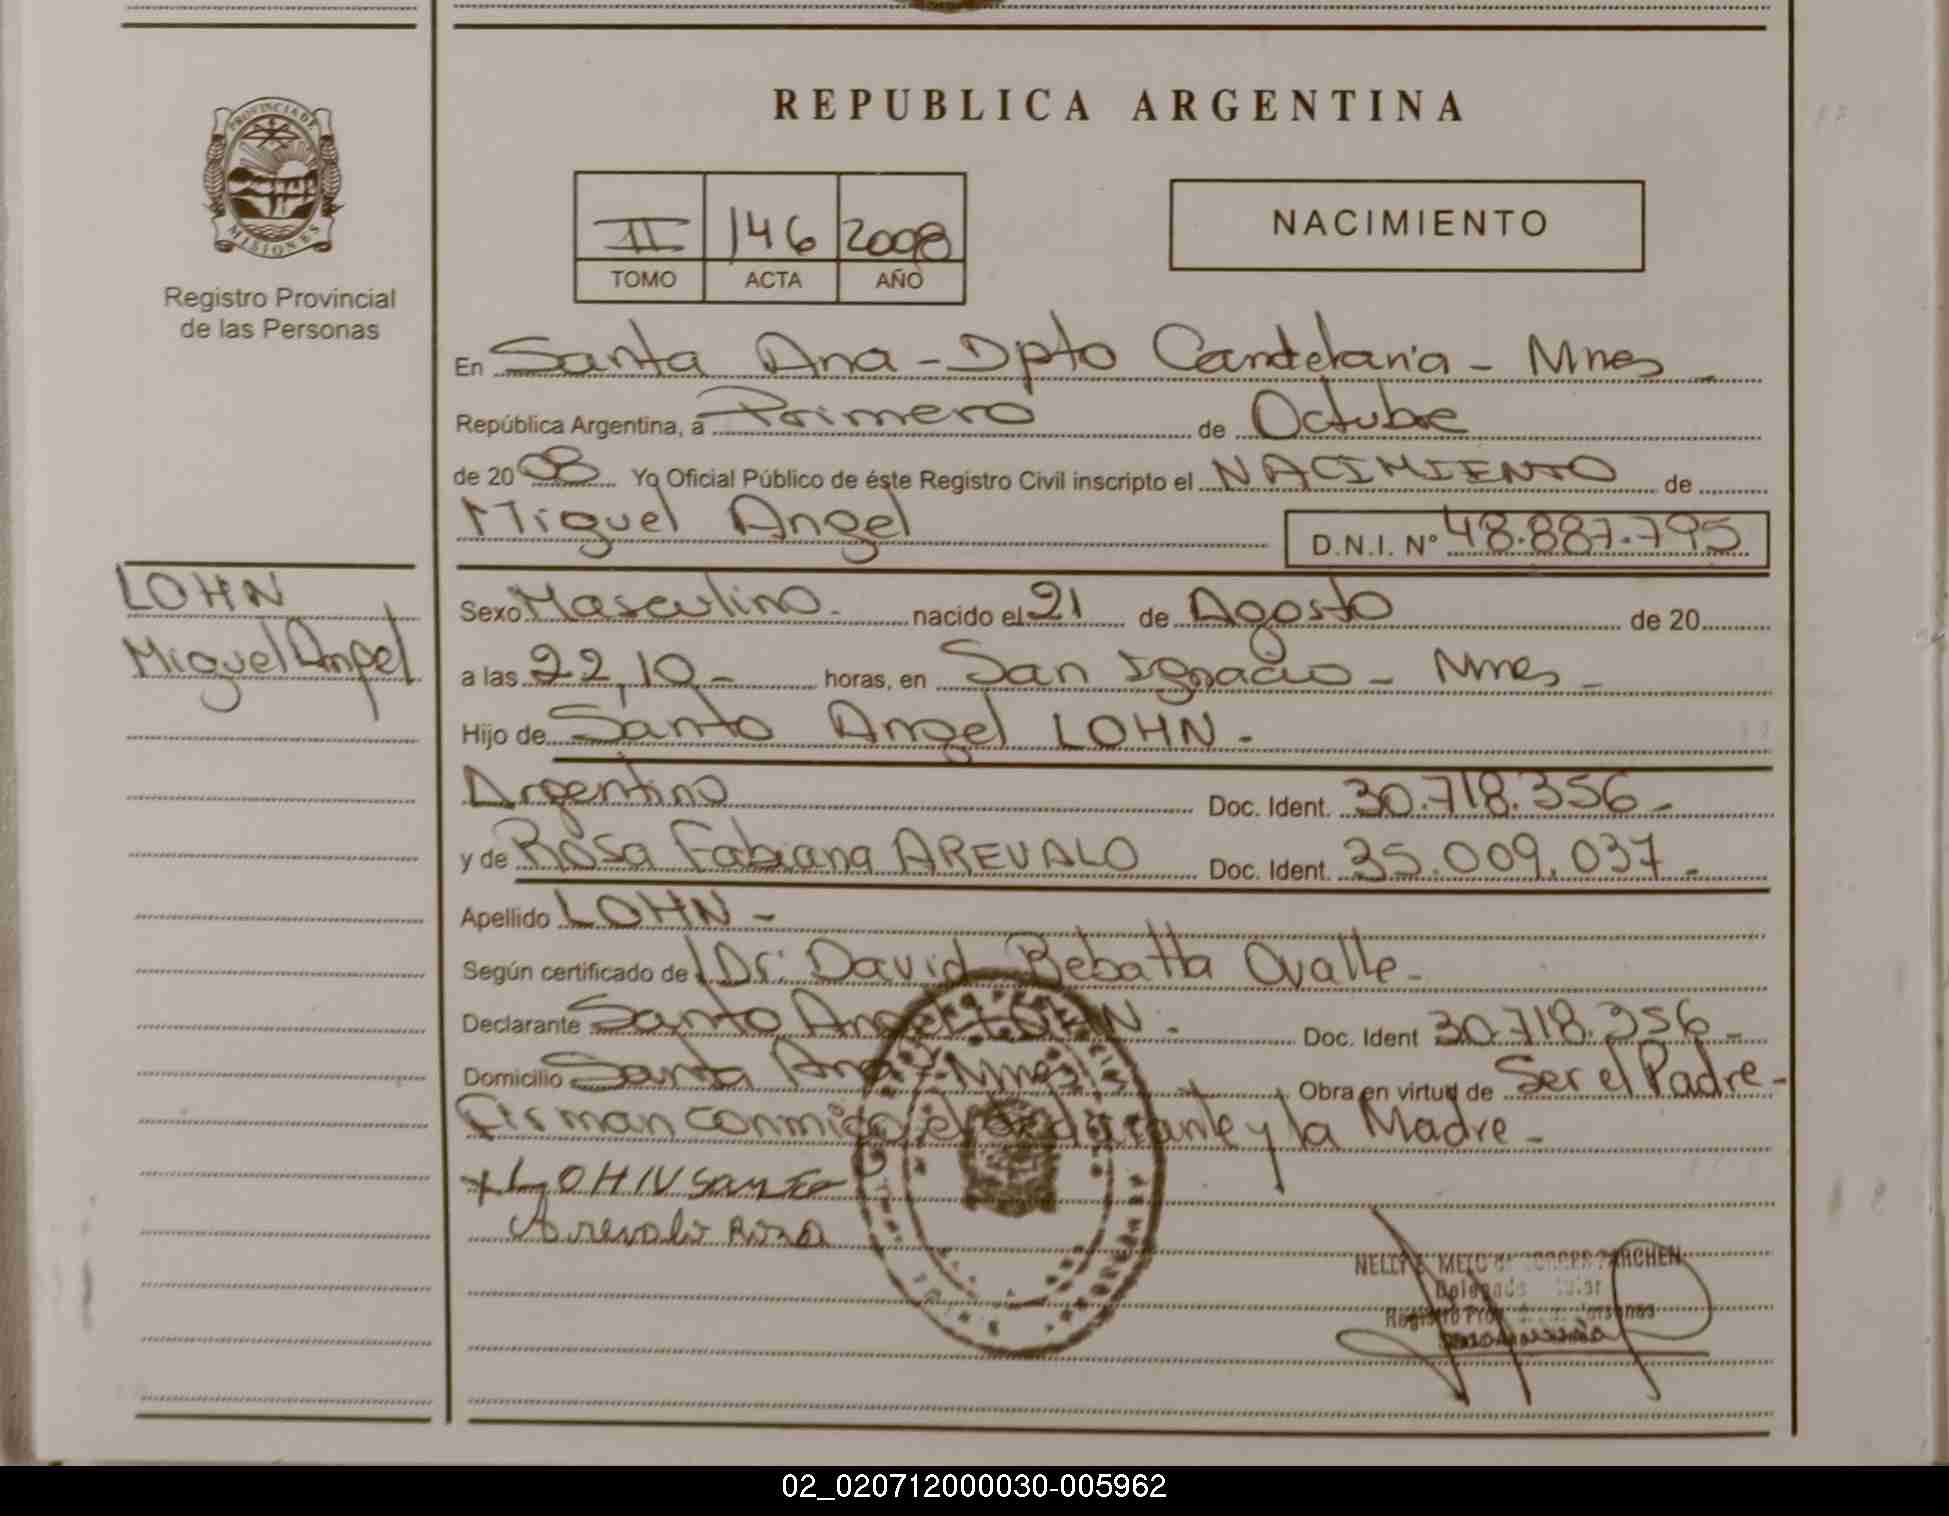 REPUBLICA ARGENTINA
PROVINCIA DE
MISIONES
Registro Provincial
de las Personas
II 146 2008
TOMO ACTA AÑO
NACIMIENTO
En Santa Ana - Dpto Candelaria - Mnes -
República Argentina, a Primero de Octubre
de 2008 Yo Oficial Público de éste Registro Civil inscripto el NACIMIENTO de
Miguel Angel D.N.I. Nº 48.887.795
LOHN
Miguel Angel
Sexo Masculino. nacido el 21 de Agosto de 20
a las 22,10- horas, en San Ignacio - Mnes -
Hijo de Santo Angel LOHN -
Argentino Doc. Ident. 30.718.356-
y de Rosa Fabiana AREVALO Doc. Ident. 35.009.037-
Apellido LOHN -
Según certificado de Dr: David Bebatta Ovalle-
Declarante Santo Angel LOHN. - Doc. Ident 30.718.356-
Domicilio Santa Ana - Mnes Obra en virtud de Ser el Padre-
Firman conmigo el declarante y la Madre -
LOHN Santo
Arevalo Rosa
NELLY MELO
02_020712000030-005962